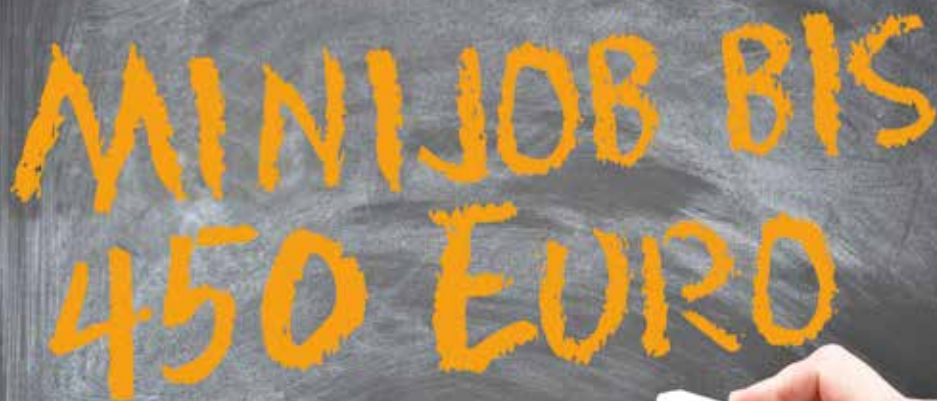 MINIJOB BIS
450 EURO